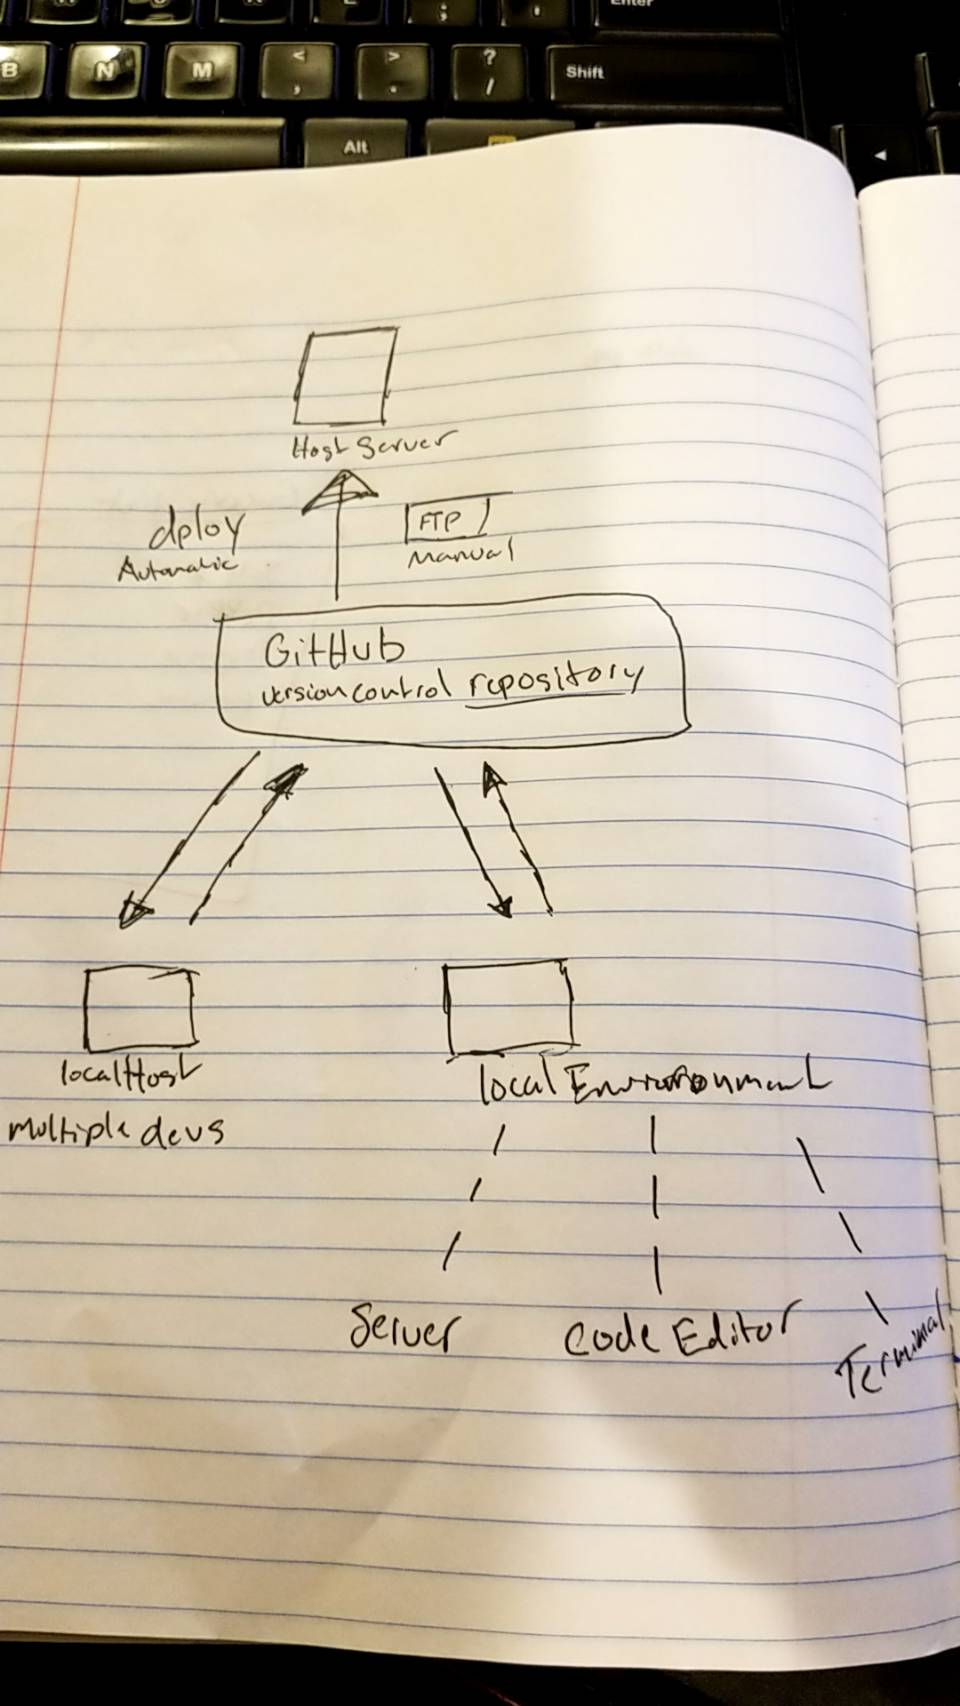 Enter
B N M < , > . ? / Shift
Alt
Host Server
dploy
Automatic
FTP
Manual
GitHub
version control repository
localHost
multiple devs
local Environment
Server
Code Editor
Terminal